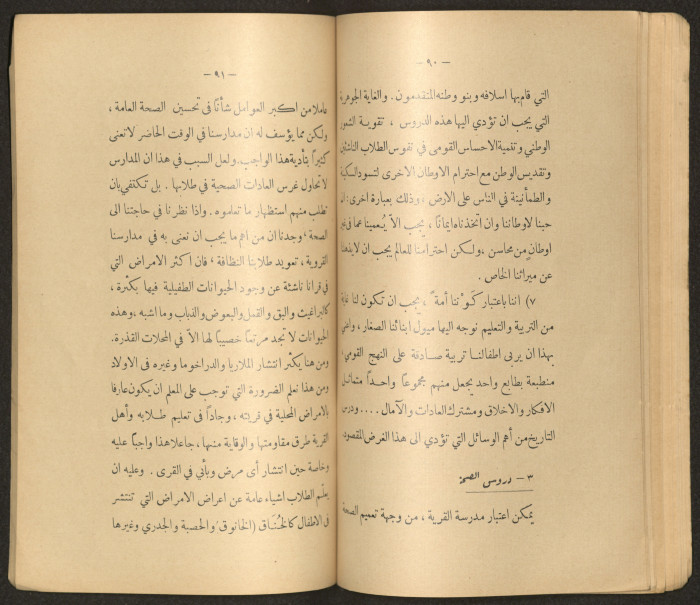 — ٩٠ —
التي قام بها اسلافه وبنو وطنه المتقدمون . والغاية الجوهرية
التي يجب ان تؤدي اليها هذه الدروس ، تقوية الشعور
الوطني وتنمية الاحساس القومي في نفوس الطلاب الناشئين
وتقديس الوطن مع احترام الاوطان الاخرى لتسود السكينة
والطمأنينة في الناس على الارض ، وذلك بعبارة اخرى : ان
حبنا لاوطاننا وان اتخذناه ايمانًا ، يجب الاّ يُعمينا عما في
اوطانٍ من محاسن ، ولكن احترامنا للعالم يجب ان لا
عن ميراثنا الخاص .
٧) اننا باعتبار كَوْننا أمةً ، يجب ان تكون لنا غاية
من التربية والتعليم نوجه اليها ميول ابنائنا الصغار ،
بهذا ان يربى اطفالنا تربية صادقة على النهج القومي
منطبعة بطابع واحد يجعل منهم مجموعًا واحدًا متماثل
الافكار والاخلاق ومشترك العادات والآمال .... ودرس
التاريخ من أهم الوسائل التي تؤدي الى هذا الغرض المقصود
٣ – دروس الصحة
يمكن اعتبار مدرسة القرية ، من وجهة تعميم الصحة
— ٩١ —
عاملا من اكبر العوامل شأنًا في تحسين الصحة العامة ،
ولكن مما يؤسف له ان مدارسنا في الوقت الحاضر لا تعنى
كثيرًا بتأدية هذا الواجب . ولعل السبب في هذا ان المدارس
لا تحاول غرس العادات الصحية في طلابها . بل تكتفي بان
تطلب منهم استظهار ما تعلموه . واذا نظرنا في حاجتنا الى
الصحة ، وجدنا ان من اهم ما يجب ان نعنى به في مدارسنا
القروية ، تعويد طلابنا النظافة ، فان اكثر الامراض التي
في قرانا ناشئة عن وجود الحيوانات الطفيلية فيها بكثرة ،
كالبراغيث والبق والقمل والبعوض والذباب وما اشبه ، وهذه
الحيوانات لا تجد مرتعًا خصيبًا لها الاّ في المحلات القذرة .
ومن هنا يكثر انتشار الملاريا والدراخوما وغيره في الاولاد
ومن هذا نعلم الضرورة التي توجب على المعلم ان يكون عارفا
بالامراض المحلية في قريته ، وجادًا في تعليم طلابه وأهل
القرية طرق مقاومتها والوقاية منها ، جاعلا هذا واجبًا عليه
وخاصة حين انتشار أى مرض وبأيي في القرى . وعليه ان
يعلّم الطلاب اشياء عامة عن اعراض الامراض التي تنتشر
في الاطفال كالخُنَاق (الخانوق) والحصبة والجدري وغيرها